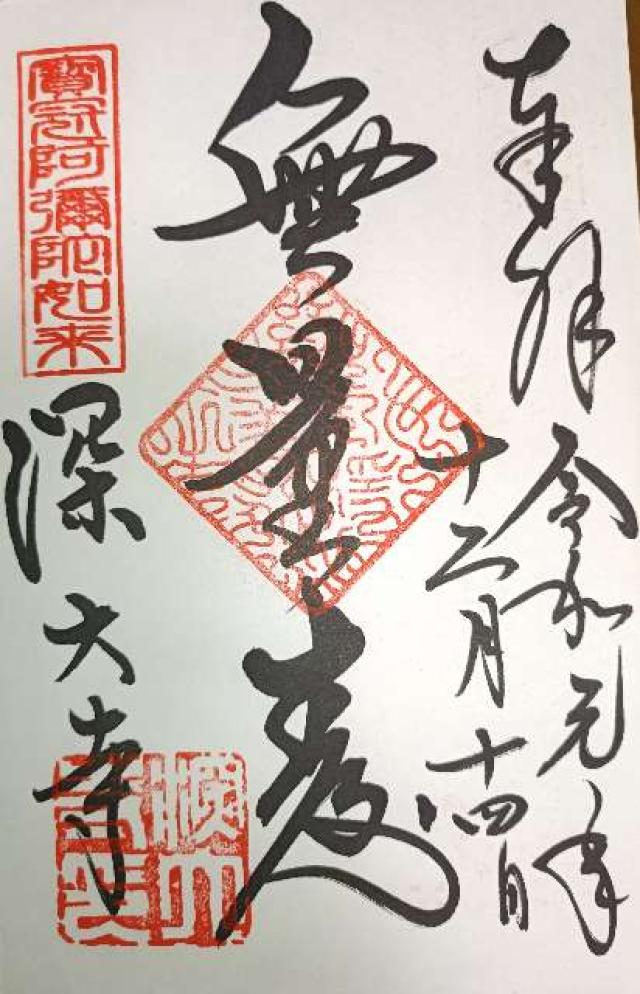 奉拝
令和元年
十二月十四日
無量寿
寳冠阿彌陀如来
深大寺